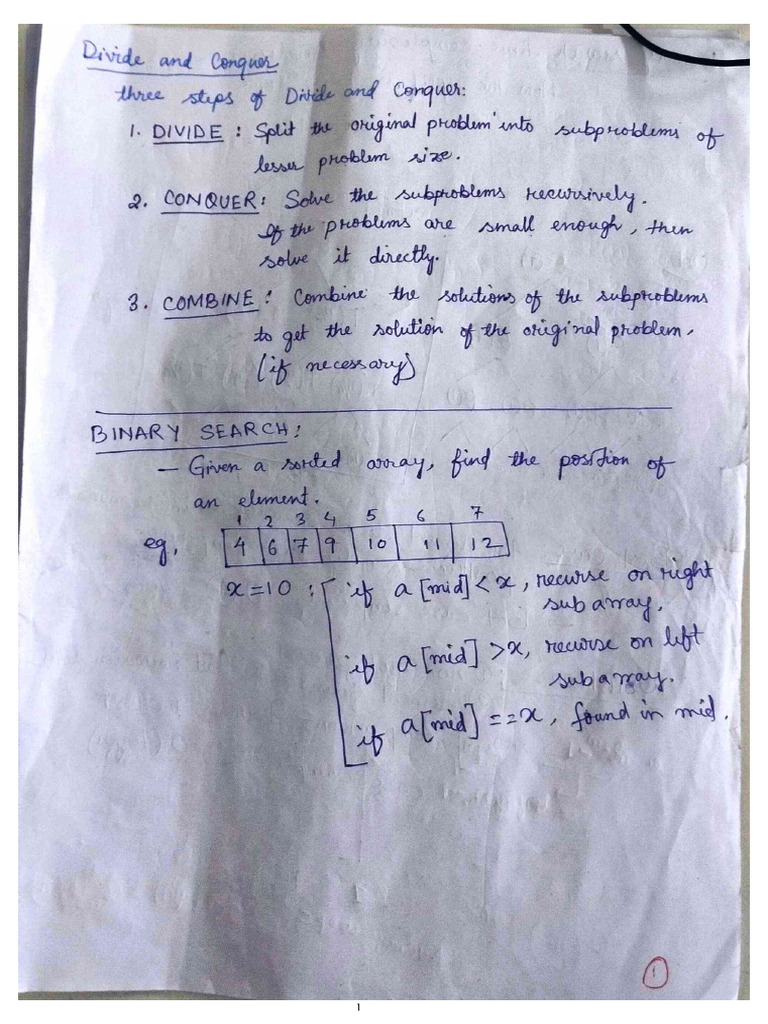 Divide and Conquer
three steps of Divide and Conquer:
1. DIVIDE : Split the original problem into subproblems of
lesser problem size.
2. CONQUER: Solve the subproblems recursively.
If the problems are small enough, then
solve it directly.
3. COMBINE: Combine the solutions of the subproblems
to get the solution of the original problem.
(if necessary)
BINARY SEARCH:
— Given a sorted array, find the position of
an element.
1 2 3 4 5 6 7
eg. 4 6 7 9 10 11 12
x=10 : if a[mid] < x, recurse on right
sub array.
if a[mid] > x, recurse on left
subarray.
if a[mid] == x, found in mid.
1
1